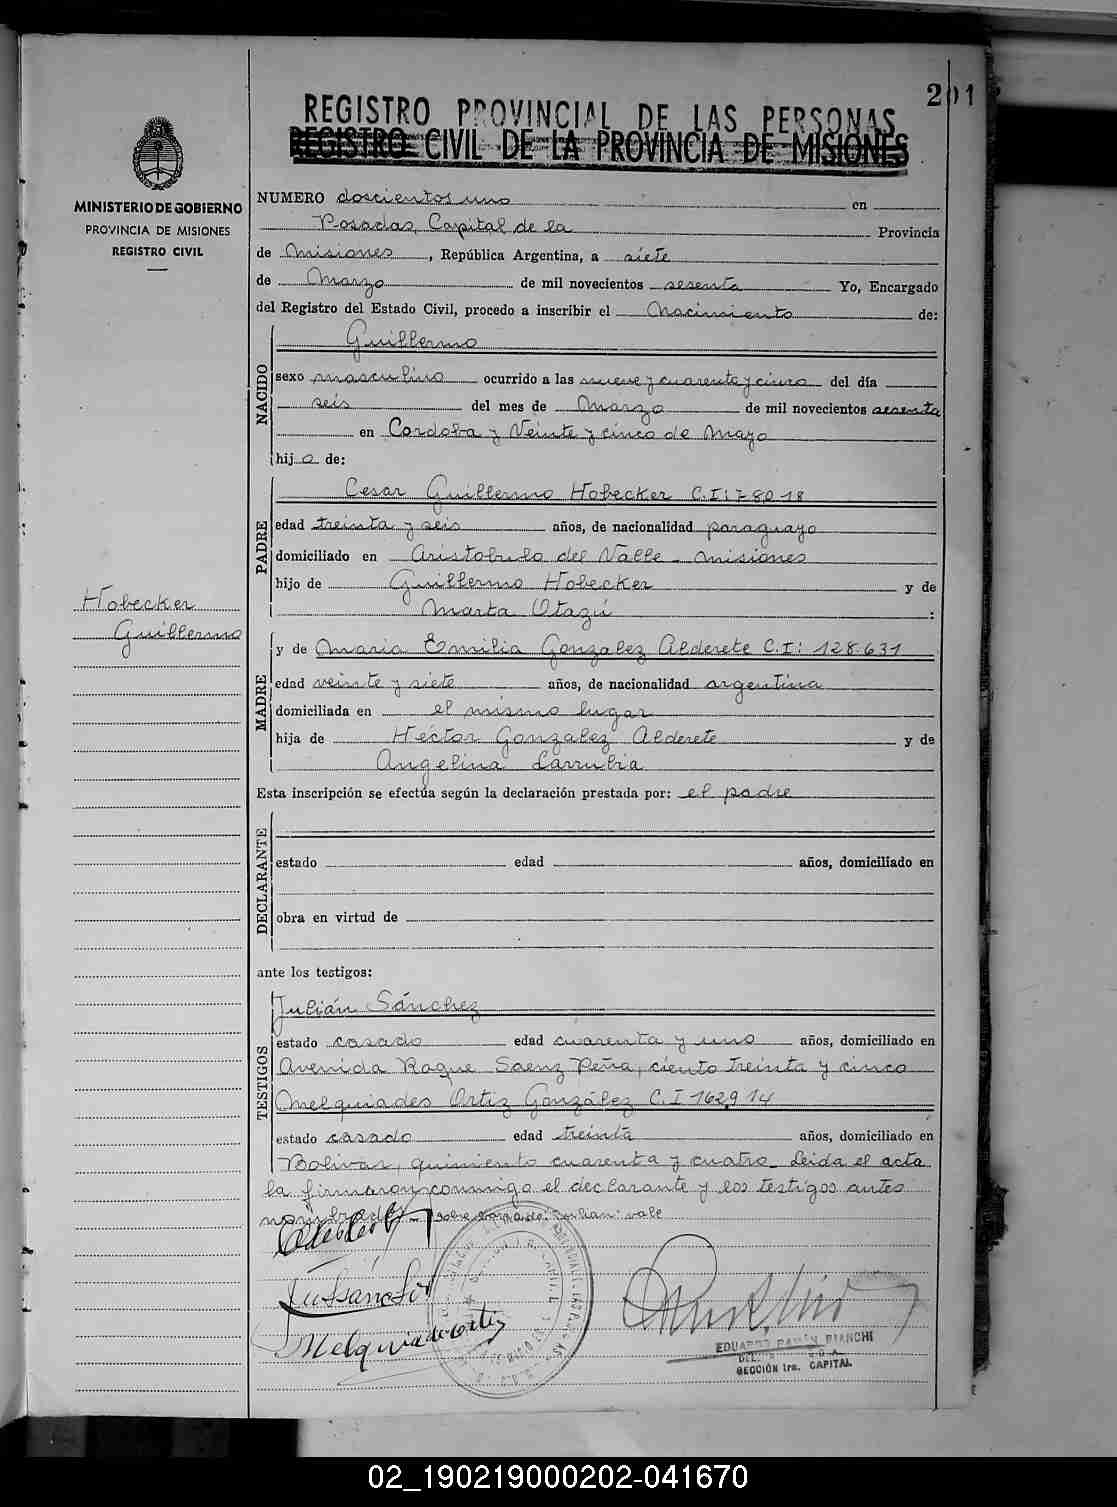 201
REGISTRO PROVINCIAL DE LAS PERSONAS
REGISTRO CIVIL DE LA PROVINCIA DE MISIONES
MINISTERIO DE GOBIERNO
PROVINCIA DE MISIONES
REGISTRO CIVIL
NUMERO doscientos uno en
Posadas, Capital de la Provincia
de Misiones, República Argentina, a siete
de Marzo de mil novecientos sesenta Yo, Encargado
del Registro del Estado Civil, procedo a inscribir el Nacimiento de:
NACIDO
Guillermo
sexo masculino ocurrido a las nueve y cuarenta y cinco del día
seis del mes de Marzo de mil novecientos sesenta
en Cordoba y Veinte y cinco de Mayo
hijo de:
PADRE
Cesar Guillermo Hobecker C.I: 78018
edad treinta y seis años, de nacionalidad paraguayo
domiciliado en Aristobulo del Valle - Misiones
hijo de Guillermo Hobecker y de
Marta Otazú :
Hobecker
Guillermo
MADRE
y de Maria Emilia Gonzalez Alderete C.I: 128.631
edad veinte y siete años, de nacionalidad argentina
domiciliada en el mismo lugar
hija de Héctor Gonzalez Alderete y de
Angelina Larrubia
Esta inscripción se efectúa según la declaración prestada por: el padre
DECLARANTE
estado edad años, domiciliado en
obra en virtud de
ante los testigos:
TESTIGOS
Julián Sánchez
estado casado edad cuarenta y uno años, domiciliado en
Avenida Roque Saenz Peña, ciento treinta y cinco
Melquiades Ortiz González C.I 162914
estado casado edad treinta años, domiciliado en
Bolivar, quiniento cuarenta y cuatro - Leida el acta
la firmaron conmigo el declarante y los testigos antes
nombrados - sobre borrado: "Julian" vale
Melquiades Ortiz
EDUARDO RAMÓN BIANCHI
SECCIÓN 1ra. CAPITAL
02_190219000202-041670